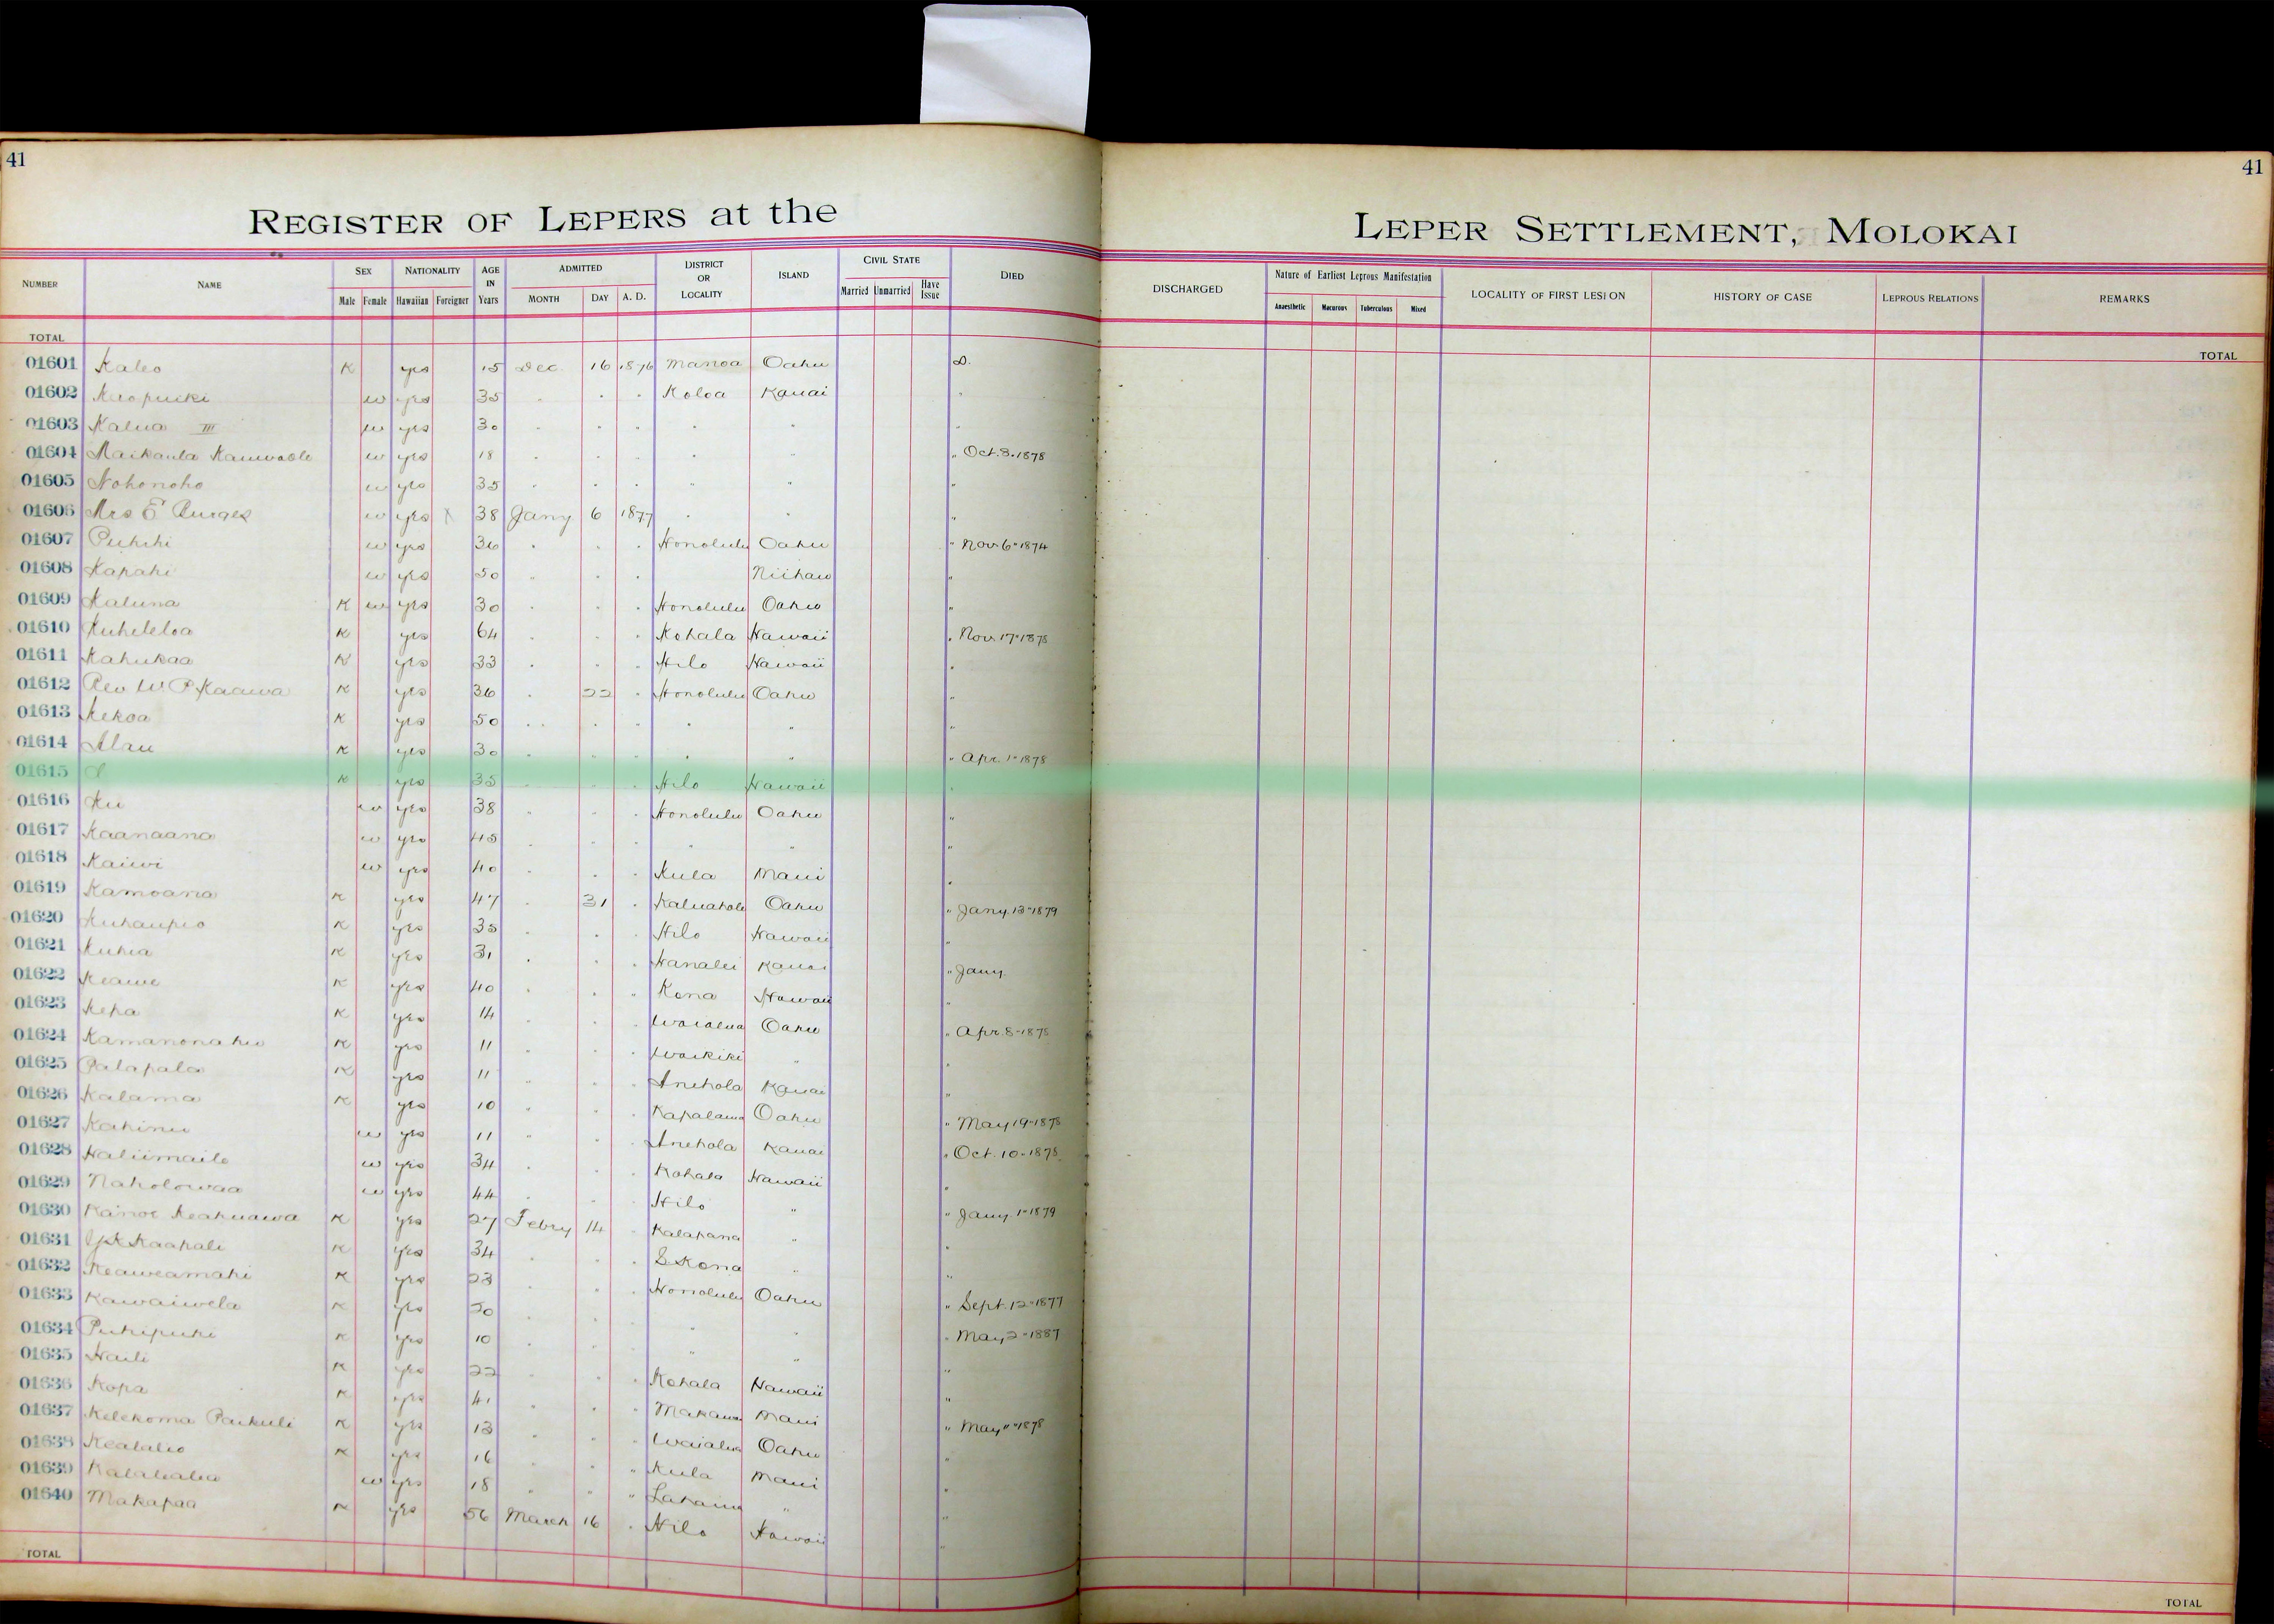 41
41
REGISTER OF LEPERS at the
LEPER SETTLEMENT, MOLOKAI
NUMBER NAME SEX NATIONALITY AGE IN Years ADMITTED DISTRICT OR LOCALITY ISLAND CIVIL STATE DIED DISCHARGED Nature of Earliest Leprous Manifestation LOCALITY OF FIRST LESION HISTORY OF CASE LEPROUS RELATIONS REMARKS
Male Female Hawaiian Foreigner MONTH DAY A. D. Married Unmarried Have Issue Anaesthetic Macurous Tuberculous Mixed
TOTAL TOTAL
01601 Kaleo K yes 15 Dec. 16 1876 Manoa Oahu D.
01602 w yes 35 " " " Koloa Kauai "
01603 Kalua III w yes 30 " " " " " "
01604 Maikaula w yes 18 " " " " " " Oct. 3. 1878
01605 Nohonoho w yes 35 " " " " " "
01606 Mrs E Burges w yes X 38 Jany. 6 1877 " " "
01607 Puhihi w yes 36 " " " Honolulu Oahu " Nov. 6 " 1874
01608 Kapahi w yes 50 " " " Niihau "
01609 Kaluna K w yes 30 " " " Honolulu Oahu "
01610 Kuheleloa K yes 64 " " " Kohala Hawaii " Nov. 17 " 1878
01611 Kahukaa K yes 33 " " " Hilo Hawaii "
01612 Rev W. P. Kaawa K yes 36 " 22 " Honolulu Oahu "
01613 Kekoa K yes 50 " " " " " "
01614 Alau K yes 30 " " " " " " Apr. 1 " 1878
01615 K yes 35 " " " Hilo Hawaii "
01616 Ku w yes 38 " " " Honolulu Oahu "
01617 Kaanaana w yes 45 " " " " " "
01618 Kaiwi w yes 40 " " " Kula Maui "
01619 Kamoana K yes 47 " 31 " Kaluahole Oahu " Jany. 13 " 1879
01620 Kuhaupio K yes 35 " " " Hilo Hawaii "
01621 Kuhia K yes 31 " " " Hanalei Kauai " Jany.
01622 Keawe K yes 40 " " " Kona Hawaii "
01623 Kepa K yes 14 " " " Waialua Oahu " Apr. 8 " 1878
01624 Kamanonahu K yes 11 " " " Waikiki " "
01625 Palapala K yes 11 " " " Anehola Kauai "
01626 Kalama K yes 10 " " " Kapalama Oahu " May 19 " 1878
01627 Kahinu w yes 11 " " " Anehola Kauai " Oct. 10 " 1878
01628 Haliimaile w yes 34 " " " Kohala Hawaii "
01629 Naholowaa w yes 44 " " " Hilo " " Jany. 1 " 1879
01630 Kanoe Keakuawa K yes 27 Febry 14 " Kalapana " "
01631 Kaapali K yes 34 " " " S. Kona " "
01632 Keaweamahi K yes 23 " " " Honolulu Oahu " Sept. 12 " 1877
01633 Kawaiwela K yes 20 " " " " " " May 2 " 1887
01634 Puhipuhi K yes 10 " " " " " "
01635 Haili K yes 22 " " " Kohala Hawaii "
01636 Kopa K yes 41 " " " Makawao Maui " May 11 " 1878
01637 Kelekoma Paikuli K yes 13 " " " Waialua Oahu "
01638 Kealalio K yes 16 " " " Kula Maui "
01639 w yes 18 " " " Lahaina " "
01640 Makapaa K yes 56 March 16 " Hilo Hawaii "
TOTAL TOTAL